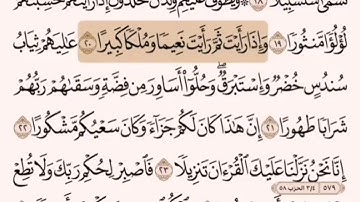 لُؤْلُؤًا مَّنثُورًا ١٩ وَإِذَا رَأَيْتَ ثَمَّ رَأَيْتَ نَعِيمًا وَمُلْكًا كَبِيرًا ٢٠ عَلِيَهُمْ ثِيَابُ
سُندُسٍ خُضْرٌ وَإِسْتَبْرَقٌ وَحُلُّوٓا۟ أَسَاوِرَ مِن فِضَّةٍ وَسَقَىٰهُمْ رَبُّهُمْ
شَرَابًا طَهُورًا ٢١ إِنَّ هَٰذَا كَانَ لَكُمْ جَزَآءً وَكَانَ سَعْيُكُم مَّشْكُورًا ٢٢
إِنَّا نَحْنُ نَزَّلْنَا عَلَيْكَ ٱلْقُرْءَانَ تَنزِيلًا ٢٣ فَٱصْبِرْ لِحُكْمِ رَبِّكَ وَلَا تُطِعْ
٥٧٩ ٣/٤ الحزب ٥٨